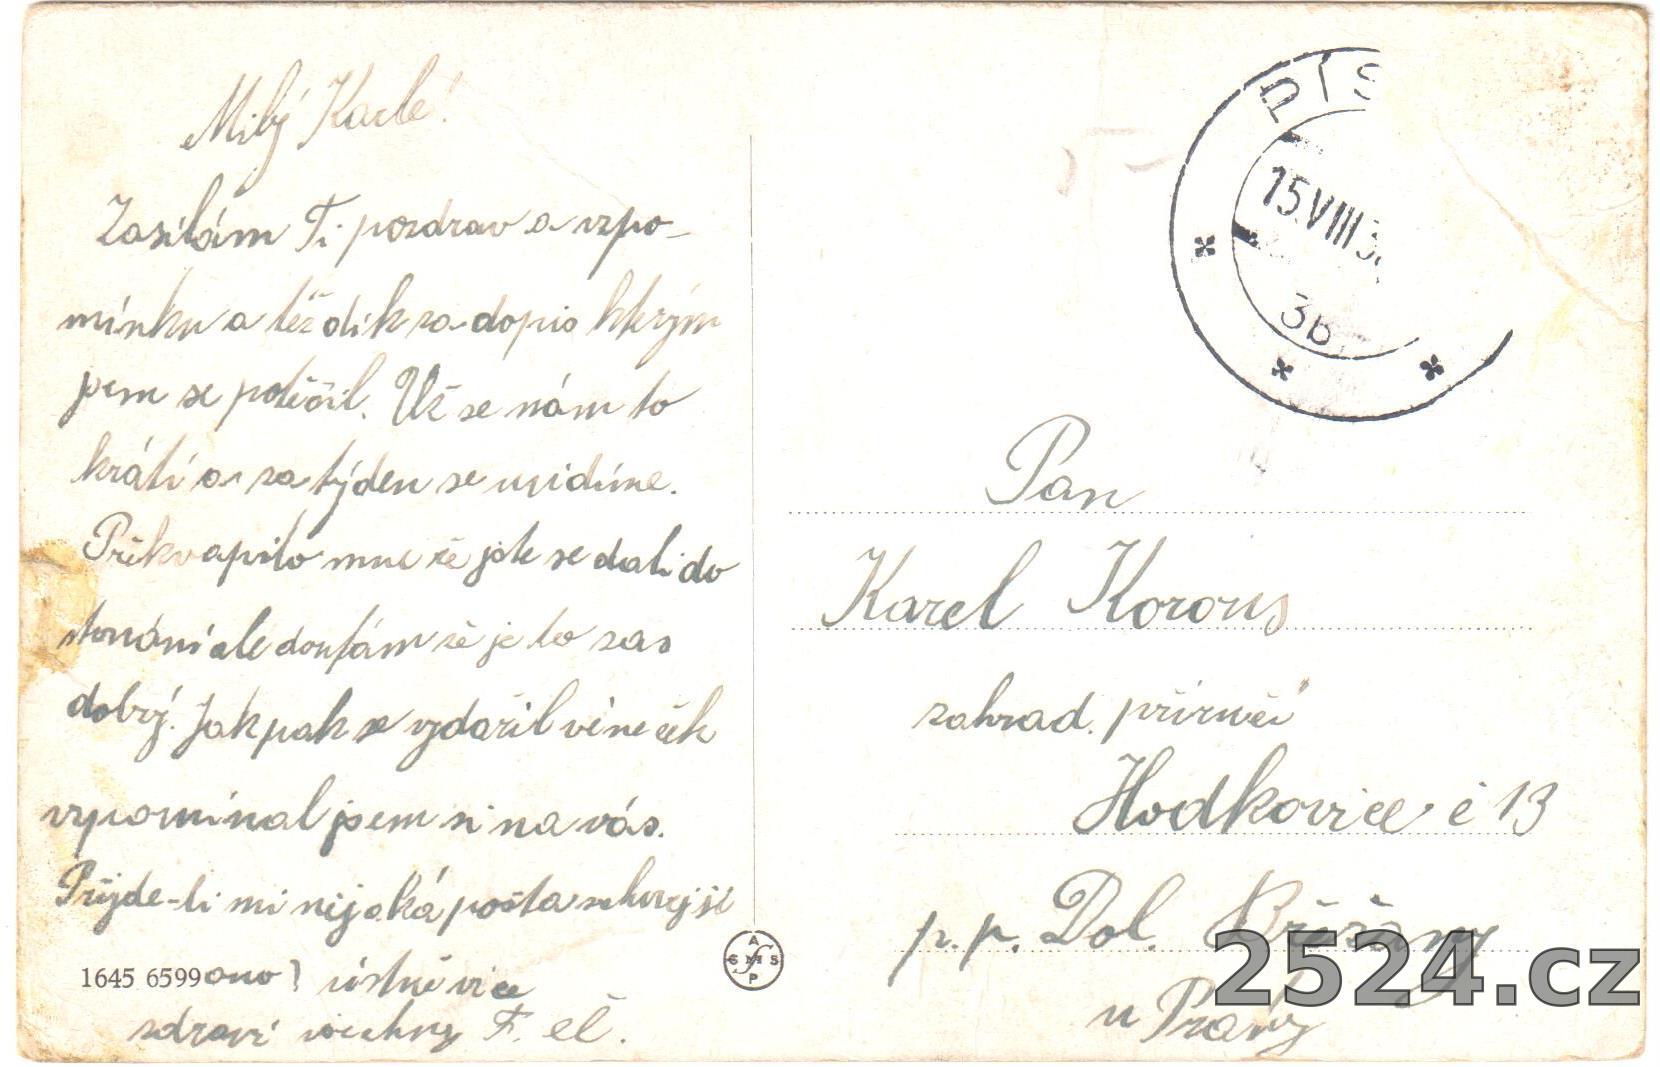 Milý Karle!
Zasílám Ti pozdrav a vzpo-
mínku a též dík za dopis kterým
jsem se potěšil. Už se nám to
krátí a za týden se uvidíme.
Překvapilo mne že jste se dali do
stonání ale doufám že je to zas
dobrý. Jakpak se vydařil věneček
vzpomínal jsem si na vás.
Přijde-li mi nijaká pošta schovej ji
1645 6599 ono) ústně více
zdraví všechny F. eč.
A
GMS
P
PÍS
15.VIII 3
3b
Pan
Karel Korous
zahrad. příručí
Hodkovice č 13
p. p. Dol. Břežany
u Prahy
2524.cz